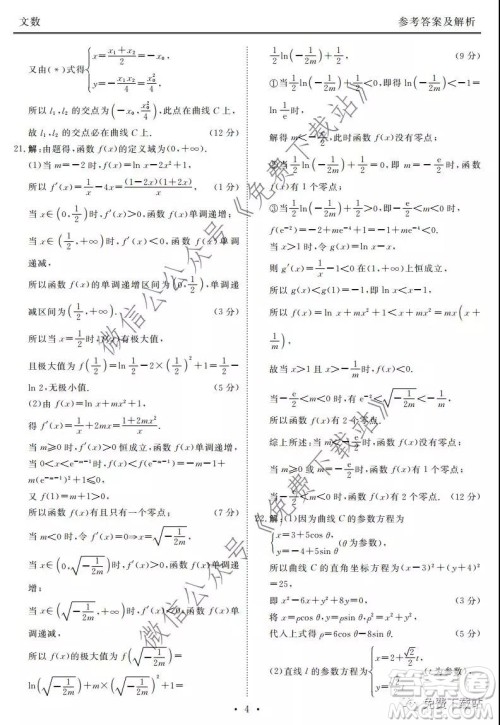 文数
参考答案及解析
又由(*)式得{x=(x₁+x₂)/2=-x₀,
y=-x₀²/4=x₀²/4.
所以 l₁,l₂ 的交点为(-x₀,x₀²/4),此点在曲线 C 上,
故 l₁,l₂ 的交点必在曲线 C 上. (12 分)
21.解:由题得,函数 f(x)的定义域为(0,+∞).
(1)当 m=-2 时,f(x)=ln x-2x²+1,
所以 f′(x)=1/x-4x=(1-2x)(1+2x)/x. (1 分)
当 x∈(0,1/2)时,函数 f(x)单调递增;
当 x∈(1/2,+∞)时,f′(x)<0,函数 f(x)单调
递减,
所以函数 f(x)的单调递增区间为(0,1/2),单调递
减区间为(1/2,+∞) (3 分)
所以当 x=1/2 时,f(x)有极大值,
且极大值为 f(1/2)=ln 1/2-2×(1/2)²+1=
ln 2,无极小值. (5 分)
(2)由 f(x)=ln x+mx²+1,
得 f′(x)=1/x+2mx=(1+2mx²)/x.
当 m≥0 时,f′(x)>0 恒成立,函数 f(x)单调递增
又 f(1)=m+1>0,
所以函数 f(x)有且只有一个零点; (7 分)
当 m<0 时,令 f′(x)=0⇒x=√(-1/2m),
当 x∈(√(-1/2m),+∞)时,f′(x)<0,函数 f(x)单
调递减,
所以 f(x)的最大值为 f(√(-1/2m))=
ln√(-1/2m)+m(√(-1/2m))²+1=
1/2 ln(-1/2m)+1/2, (9 分)
①当 1/2 ln(-1/2m)+1/2<0,即得 ln(-1/2m)<-1=
ln 1/e 时,
解得 m<-e/2,此时函数 f(x)没有零点;
②当 1/2 ln(-1/2m)+1/2=0,即 m=-e/2 时,函数
f(x)有 1 个零点;
③当 1/2 ln(-1/2m)+1/2>0,即-e/2<m<0 时,
当 x>1 时,令 g(x)=ln x-x,
则 g′(x)=1/x-1<0 在(1,+∞)上恒成立,
所以 g(x)<g(1)=-1,即 ln x<x-1,
故当 x>1 且 x>-1/m 时,f(x)<0,
当-e/2<m<0 时,有 e⁻²<√(-1/2m)
所以函数 f(x)有 2 个零点.
综上所述:当 m<-e/2 时,函数 f(x)没有零点;
当 m≥0 或 m=-e/2 时,函数 f(x)有 1 个零点;
当-e/2<m<0 时,函数 f(x)有 2 个零点. (12 分)
22.解:(1)因为曲线 C 的参数方程为
{x=3+5cos θ,
y=-4+5sin θ (θ 为参数),
所以曲线 C 的直角坐标方程为(x-3)²+(y+4)²
=25,
即 x²-6x+y²+8y=0. (3 分)
将 x=ρcos θ,y=ρsin θ,
代入上式得 ρ=6cos θ-8sin θ. (5 分)
·4·
微信公众号《免费下载站》
微信公众号《免费下载站》
答案圈
免费下载站